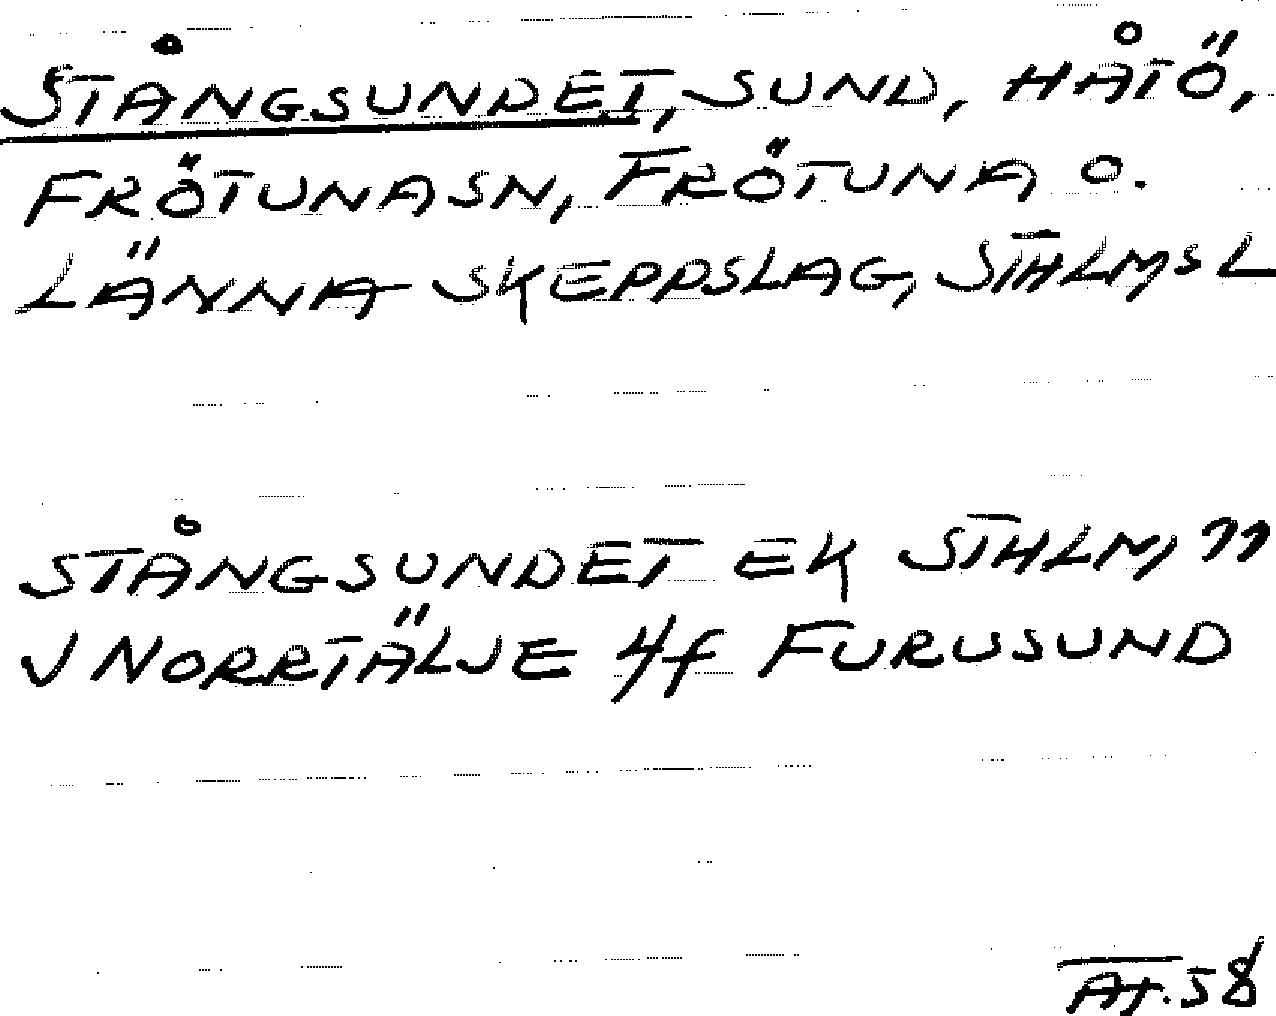 STÅNGSUNDET, SUND, HÅTÖ,
FRÖTUNASN, FRÖTUNA O.
LÄNNA SKEPPSLAG, STHLMS L
STÅNGSUNDET EK STHLM, 77
V NORRTÄLJE 4f FURUSUND
AJ. 58